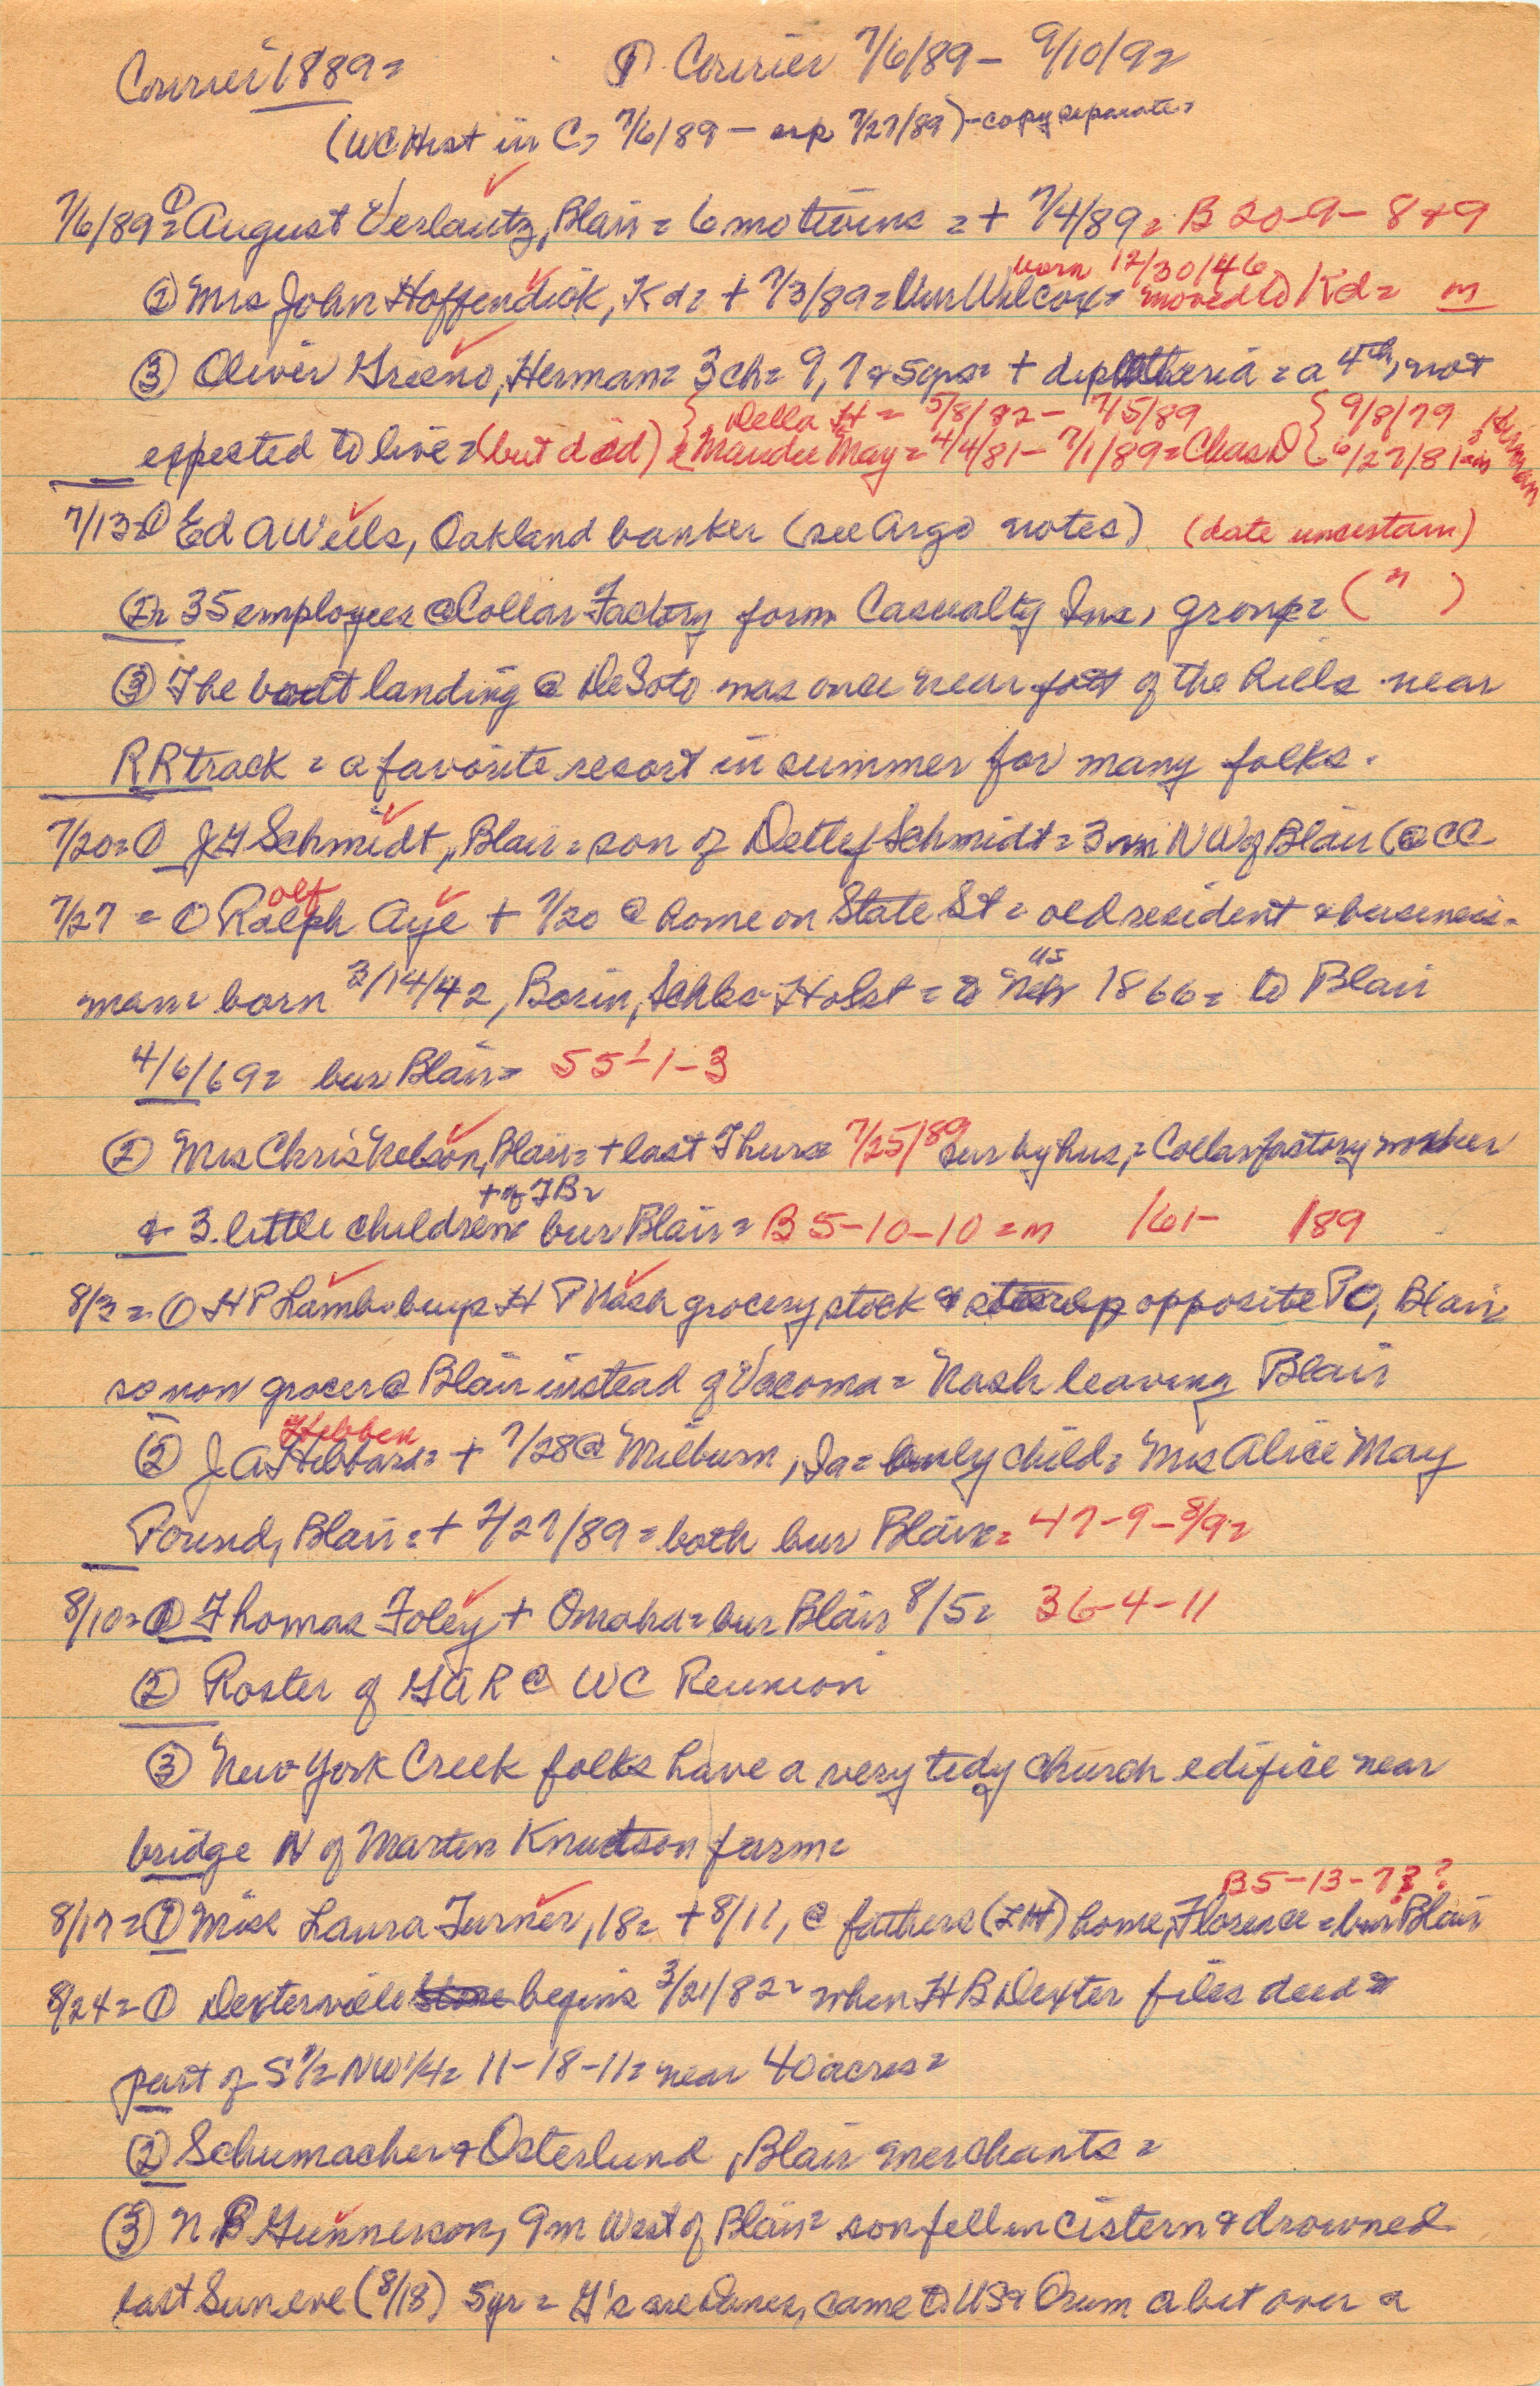 Courier 1889= ① Courier 7/6/89 – 9/10/92
(WC Hist in C, 7/6/89 – esp 7/27/89) – copy separate=
7/6/89=① August Verlautz, Blair = 6 mo twins = + 7/4/89 = B 20-9-8+9
born 12/30/46
② Mrs John Hoffendick, Kd= + 7/3/89 = Wilcox= moved to Kd= m
③ Oliver Greeno, Herman= 3 ch= 9, 7 & 5 yrs= + diphtheria = a 4th, not
{ Della H = 5/8/82 – 7/5/89 { 9/8/79
expected to live = (but did) & Maudee May = 4/4/81 – 7/1/89 = Chas D 6/27/81 = in Herman
7/13=① Ed A Wells, Oakland banker (see Argo notes) (date uncertain)
②= 35 employees @ Collar Factory form Casualty Ins, group= ( " )
③ The boat landing @ DeSoto was once near foot of the hills near
RR track = a favorite resort in summer for many folks.
7/20=① J H Schmidt, Blair = son of Detlef Schmidt = 3 mi NW of Blair (@ CC
olf
7/27 = ① Ralph Aye + 7/20 @ home on State St = old resident & business-
us
man= born 3/14/42, Borin, Schles Holst = to Neb 1866= to Blair
4/6/69= bur Blair= 55-1-3
② Mrs Chris Nelson, Blair= + last Thurs= 7/25/89 sur by hus,= Collar factory worker
+ of TB=
& 3 little children= bur Blair= B 5-10-10 = m /61- /89
8/3=① H P Lamb buys H P Nash grocery stock & opposite PO, Blair
so now grocer @ Blair instead of Vacoma= Nash leaving Blair
Hebben
② J A Hibbard= + 7/28 @ Milburn, Ia= only child= Mrs Alice May
Pound, Blair= + 7/27/89 = both bur Blair= 47-9-8/9=
8/10=① Thomas Foley + Omaha= bur Blair 8/5= 36-4-11
② Roster of GAR @ WC Reunion
③ New York Creek folks have a very tidy church edifice near
bridge N of Marten Knudtson farm=
B5-13-7??
8/17=① Miss Laura Turner, 18= + 8/11, @ fathers (LH) home, Florence = bur Blair
8/24=① Dexterville store begins 3/21/82= when H B Dexter files deed=
part of S 1/2 NW 1/4= 11-18-11= near 40 acres=
② Schumacher & Osterlund, Blair merchants=
③ N. B Gunnerson, 9 m West of Blair= son fell in cistern & drowned
last Sun eve (8/18) 5 yr = G's are Danes, came to US & Orum a bit over a